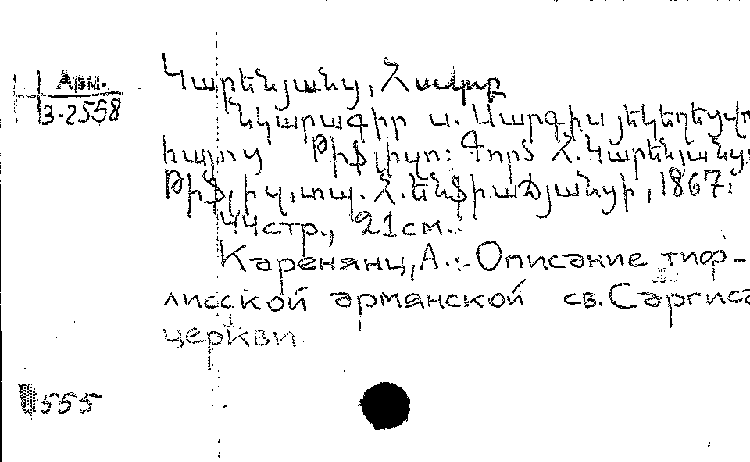 Կարենյանց, Հակոբ
Арм.
3-2558
Նկարագիր ս. Սարգիս յեկեղեցվո
հայոց Թիֆլիզու: Գործ Հ. Կարենյանց.
Թիֆլիզ, տպ. Հ. Ենֆիաճյանցի, 1867:
44стр., 21см.
Каренянц, А. :- Описание тиф-
лисской армянской св. Саргиса
церкви
555